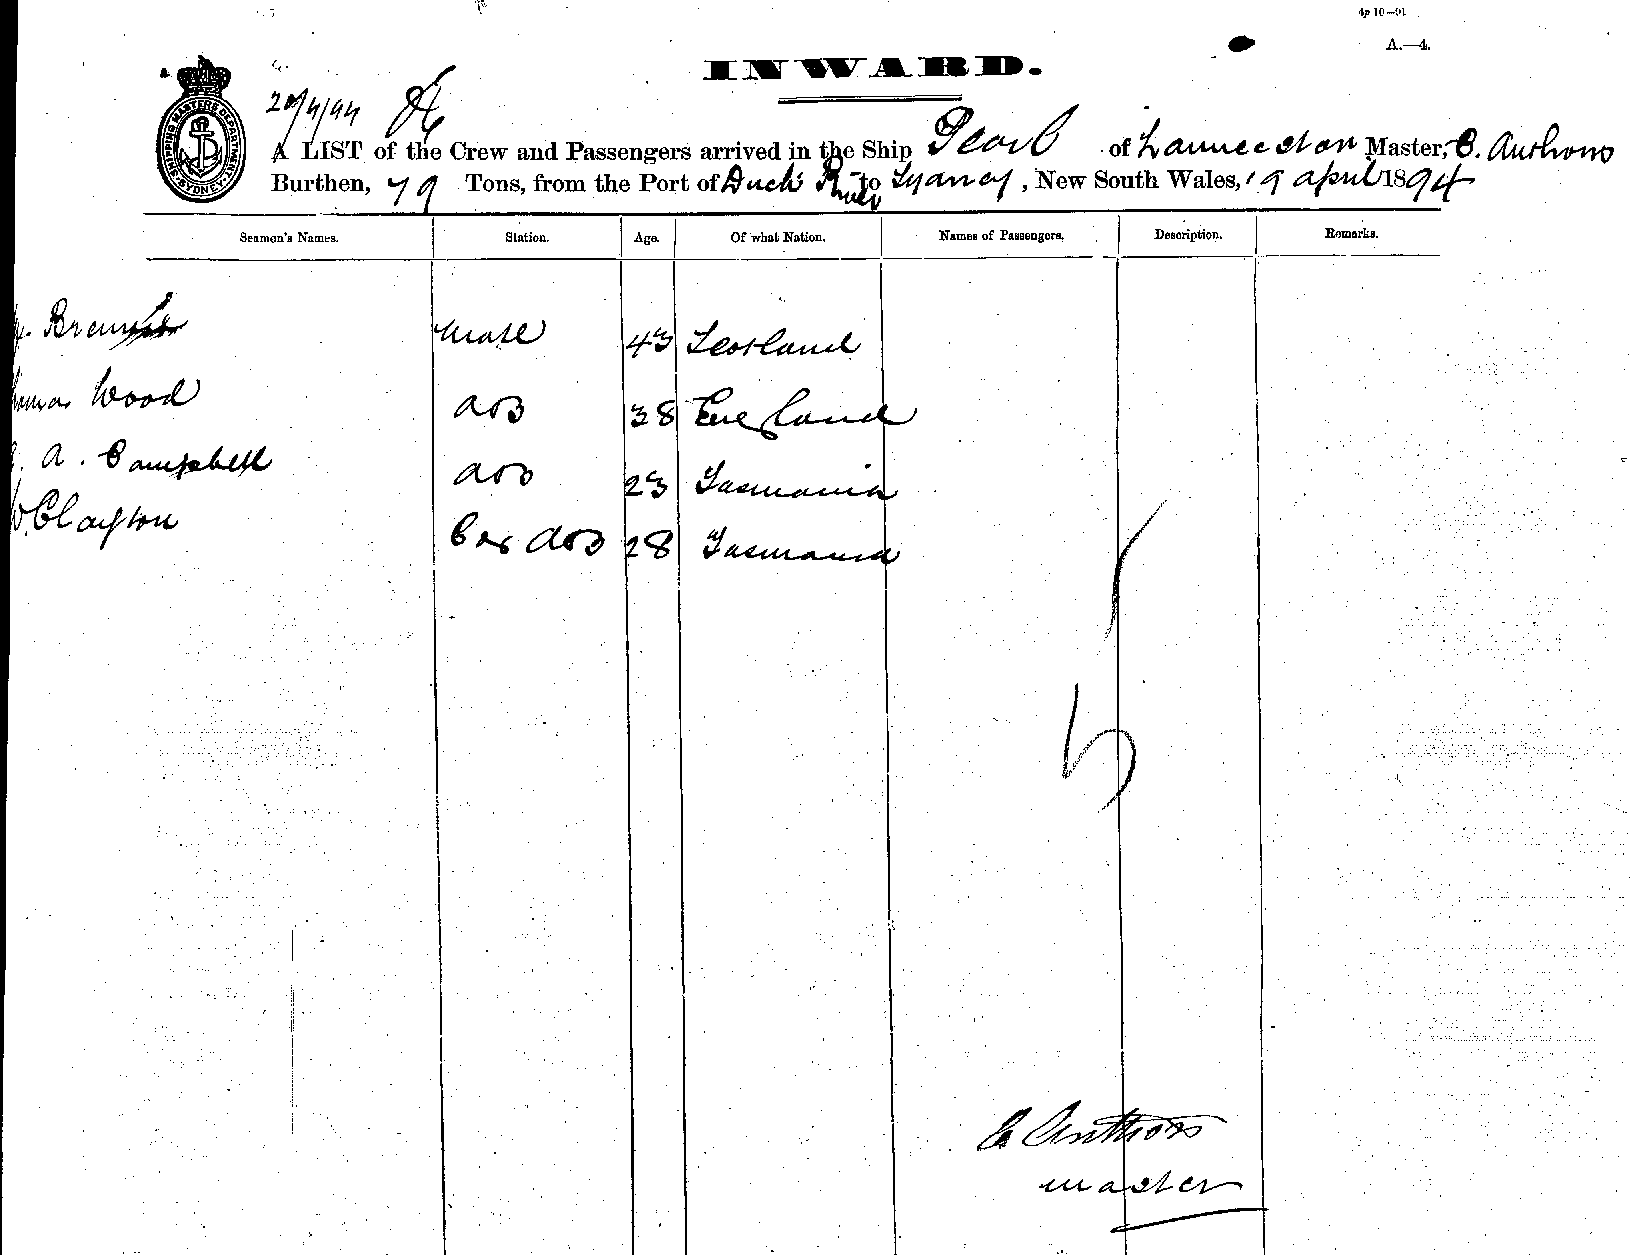 4p 10—91
A.—4.
INWARD.
20/4/94
SHIPPING MASTERS DEPARTMENT SYDNEY
A LIST of the Crew and Passengers arrived in the Ship Pearl of Launceston Master, C. Anthons
Burthen, 79 Tons, from the Port of Duck River to Sydney, New South Wales, 19 april 1894
Seamen's Names. Station. Age. Of what Nation. Names of Passengers. Description. Remarks.
mate 43 Scotland
Wood AB 38 England
A. Campbell AB 23 Tasmania
Clayton AB 28 Tasmania
5
C Anthons
master